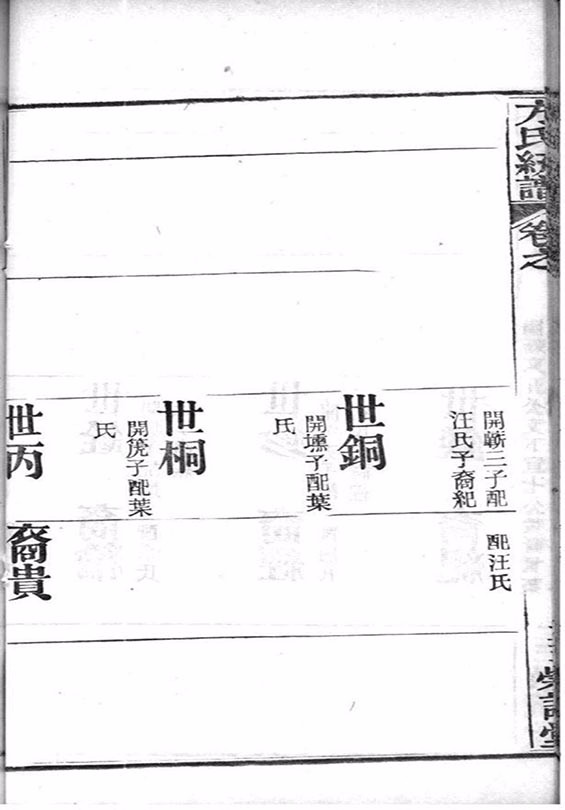 方氏統譜
卷之
開蘄三子配
汪氏子裔紀
配汪氏
世銅
開壎子配葉
氏
世桐
開箎子配葉
氏
世丙
裔貴